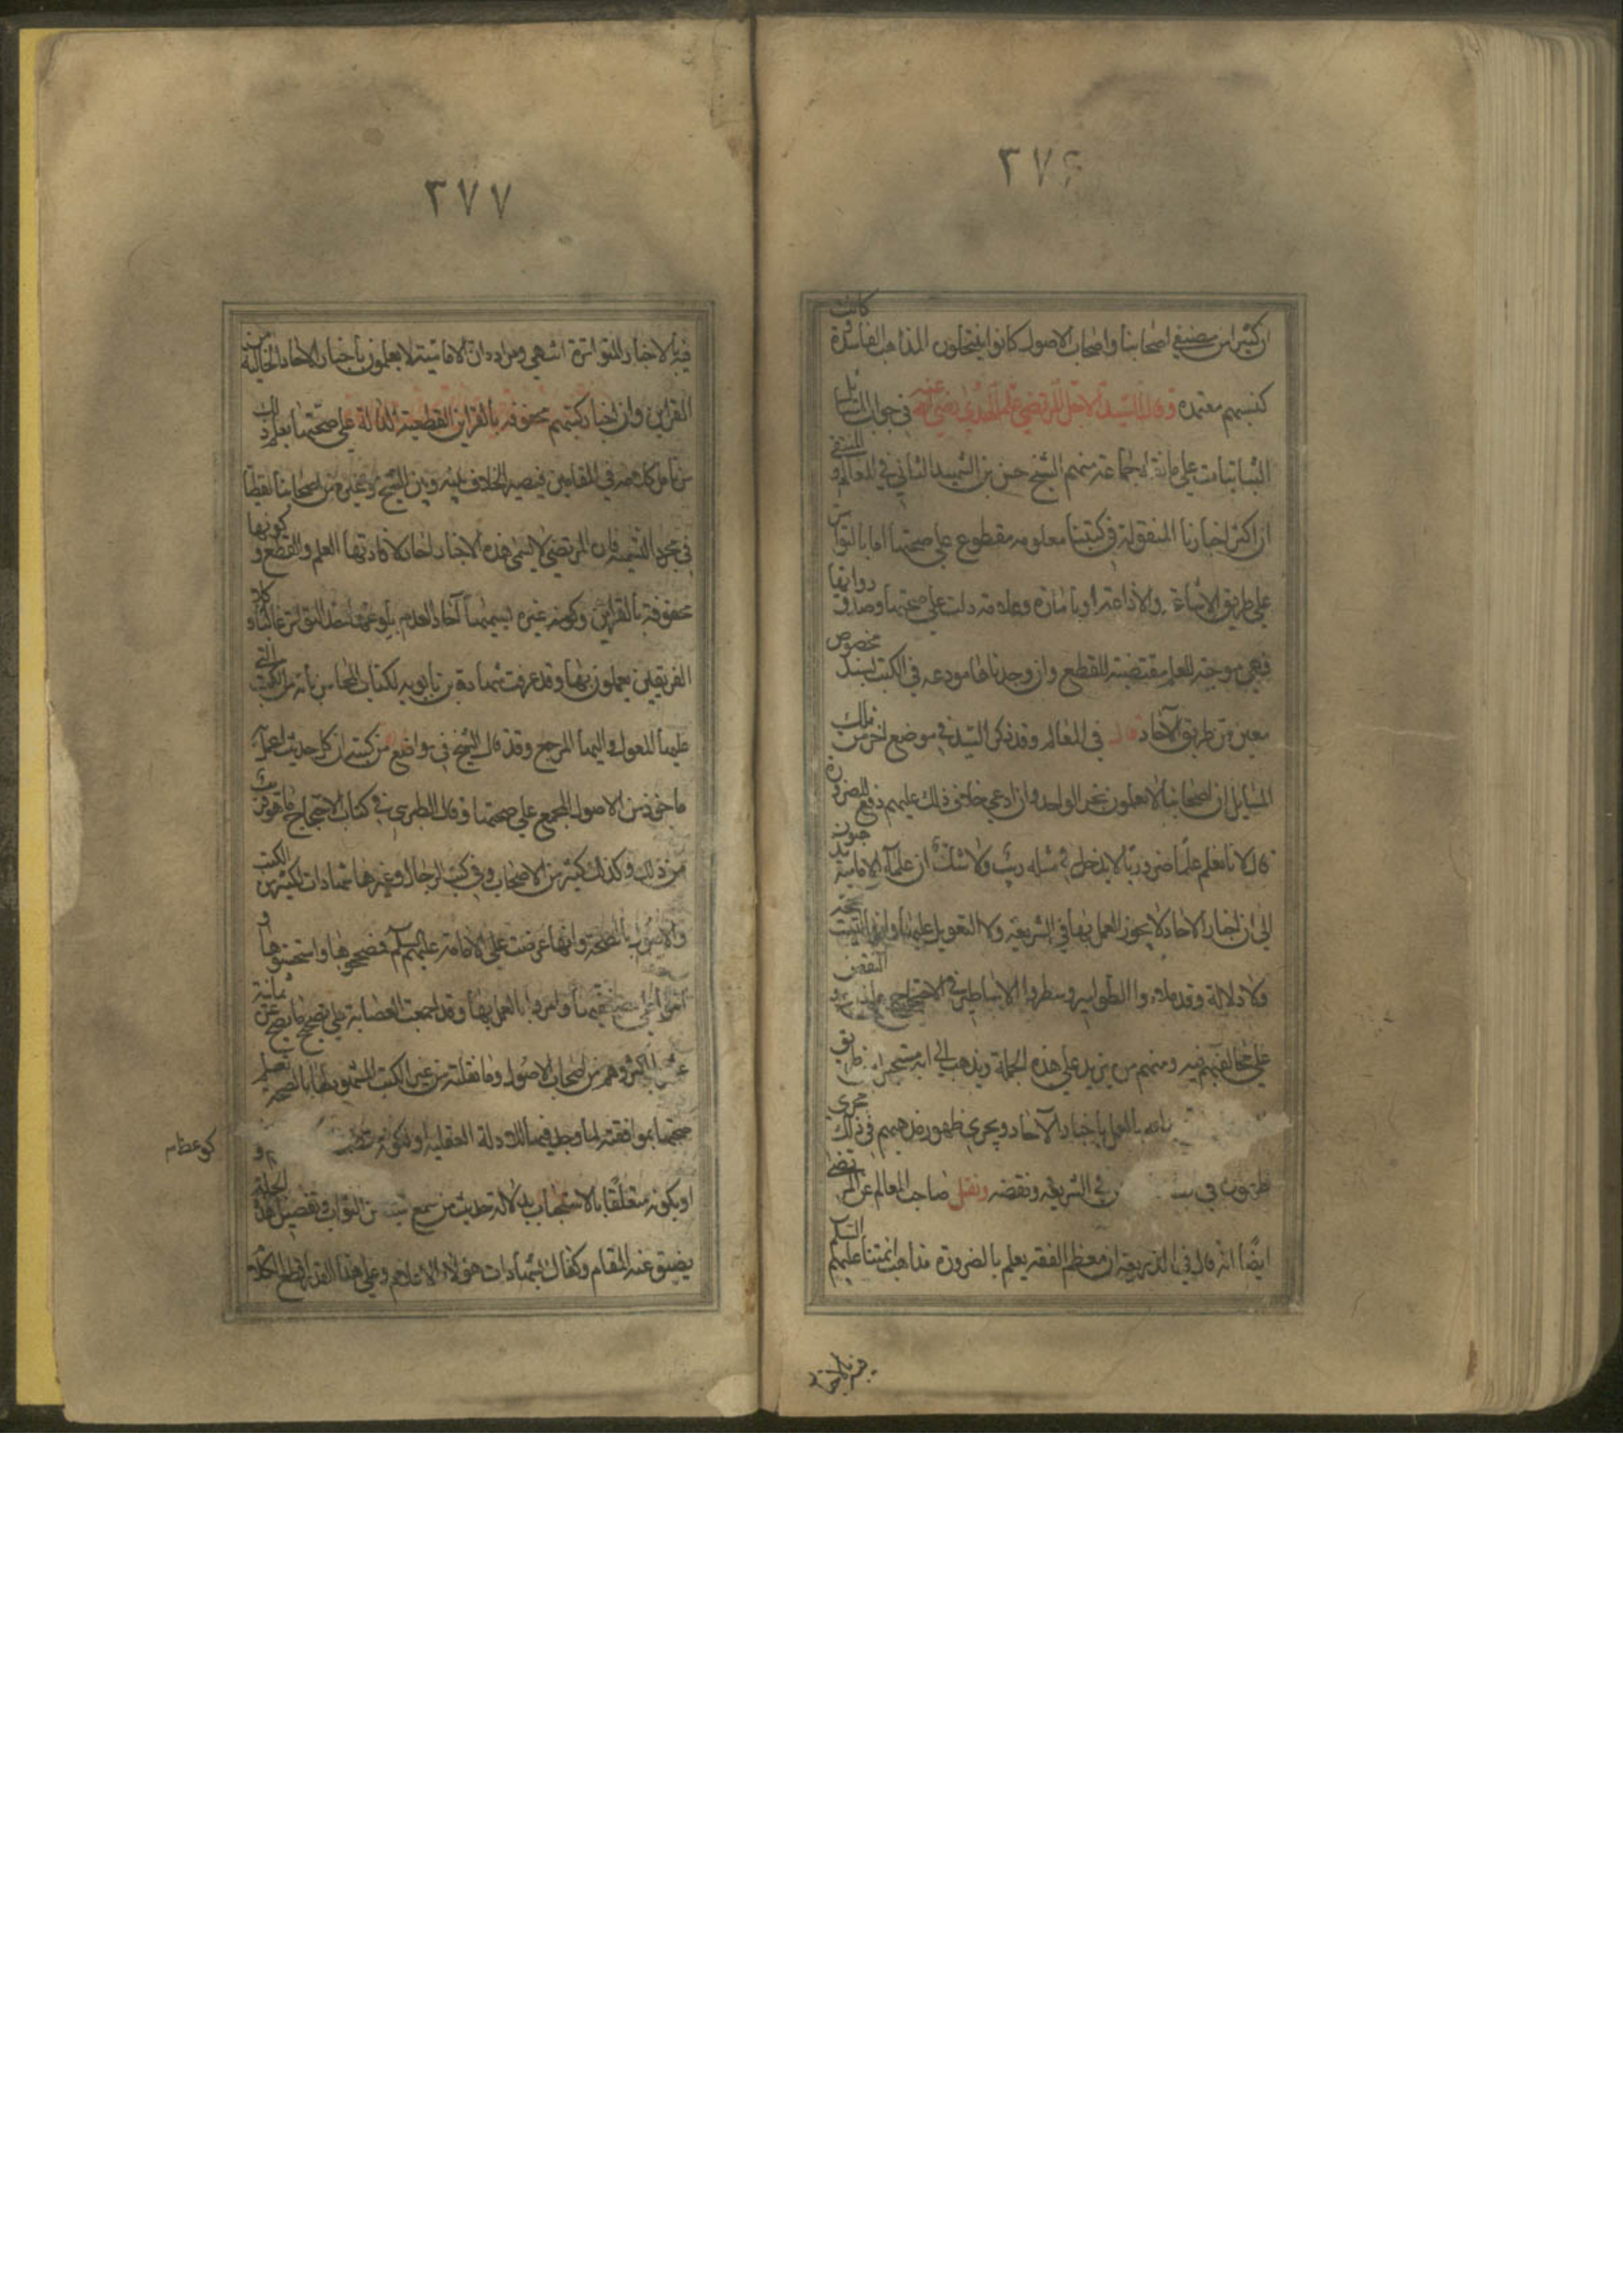 ٣٧۶
ان كثيرا من مصنفي اصحابنا واصحاب الاصول كانوا ينتحلون المذاهب الفاسدة وان كانت
كتبهم معتمدة وقال السيد الاجل المرتضى علم الهدى رضي الله عنه في جواب المسائل
التبانيات على ما نقله جماعة منهم الشيخ حسن بن الشهيد الثاني في المعالم و المنتقى
ان اكثر اخبارنا المنقولة في كتبنا معلومة مقطوع على صحتها اما بالتواتر
على طريق الاشاعة والاذاعة او بامارة وعلامة دلت على صحتها وصدق رواتها
فهي موجبة للعلم مقتضية للقطع وان وجدناها مودعة في الكتب بسند مخصوص
معين من طريق الآحاد قال في المعالم وقد ذكر السيد في موضع اخر من تلك
المسايل ان اصحابنا لا يعملون بخبر الواحد وان ادعى خلاف ذلك عليهم دفع للضرورة
قال لانا نعلم علما ضروريا لا يدخل في مثله ريب ولا شك ان علماء الامامية يذهبون
الى ان اخبار الآحاد لا يجوز العمل بها في الشريعة ولا التعويل عليها وانها ليست بحجة
ولا دلالة وقد ملاءوا الطوامير وسطروا الاساطير في الاحتجاج على ذلك و النقض
على مخالفيهم فيه ومنهم من يزيد على هذه الجملة ويذهب الى انه مستحيل من طريق
بالعمل باخبار الآحاد ويجري ظهور مذهبهم في ذلك مجرى
في الشريعة ونقضه ونقل صاحب المعالم عن المرتضى
ايضا انه قال في الذريعة ان معظم الفقه يعلم بالضرورة مذاهب ائمتنا عليهم السلم
٣٧٧
فيه بالاخبار المتواترة انتهى ومراده ان الامامية لا يعملون باخبار الآحاد الخالية من
القراين وان اخبار كتبهم محفوفة بالقراين القطعية الدالة على صحتها يعلم ذلك
من تامل كلامه في المقامين فيصير الخلاف بينه وبين الشيخ وغيره من اصحابنا لفظيا
في مجرد التسمية فان المرتضى لا يسمى هذه الاخبار احادا لافادتها العلم والقطع و كونها
محفوفة بالقراين وكونه غيره يسميها آحادا لعدم بلوغها حد التواتر غالبا و كلا
الفريقين يعملون بها وقد عرفت شهادة بن بابويه لكتاب المحاسن بانه من الكتب التي
عليها المعول واليها المرجع وقد قال الشيخ في مواضع من كتبه ان كل حديث اعمل به
ماخوذ من الاصول المجمع على صحتها وقال الطبرسي في كتاب الاحتجاج ما هو قريب
من ذلك وكذلك كثير من الاصحاب وفي كتب الرجال وغيرها شهادات لكثير من الكتب
والاصول بالصحة وانها عرضت على الائمة عليهم السلم فصححوها واستحسنوها و
وامروا بالعمل بها وقد اجمعت العصابة على تصحيح ما يصح عن ثمانية
عشر اكثرهم من اصحاب الاصول وما نقلته من غير الكتب المشهود لها بالصحة تعلم
صحتها بموافقته لما وجد فيها للادلة العقلية او لكونه
او يكونه متعلقا بالاستحباب بدلالة حديث من سمع شيئا من الثواب وتفصيل هذه الجملة
يضيق عنه المقام وكفاك بشهادات هؤلاء الاعلام وعلى هذا القدر نقطع الكلام